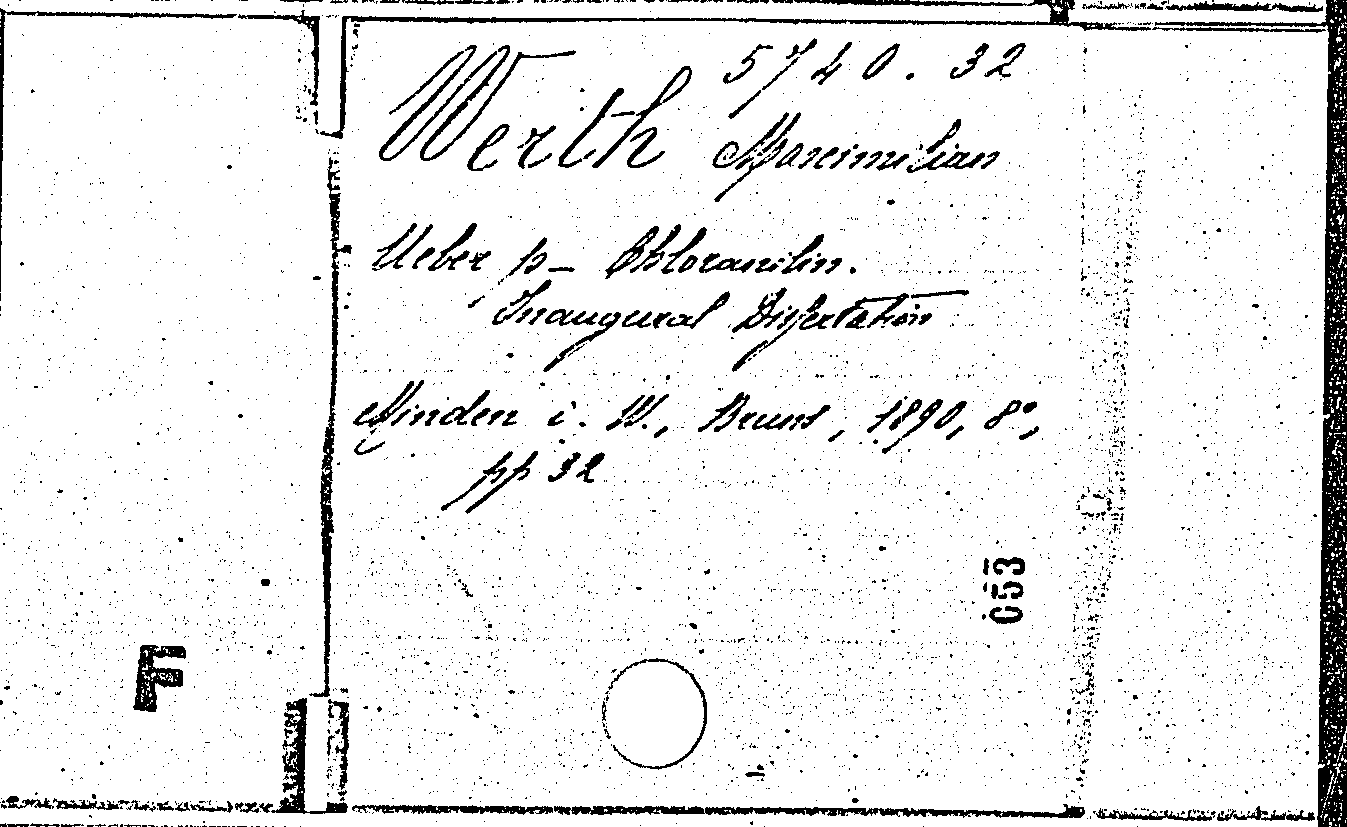 5740.32
Werth Maximilian
Ueber p- Chloranilin.
Inaugural Dissertation
Minden i. W., Bruns, 1890, 8°,
pp 32
053
F